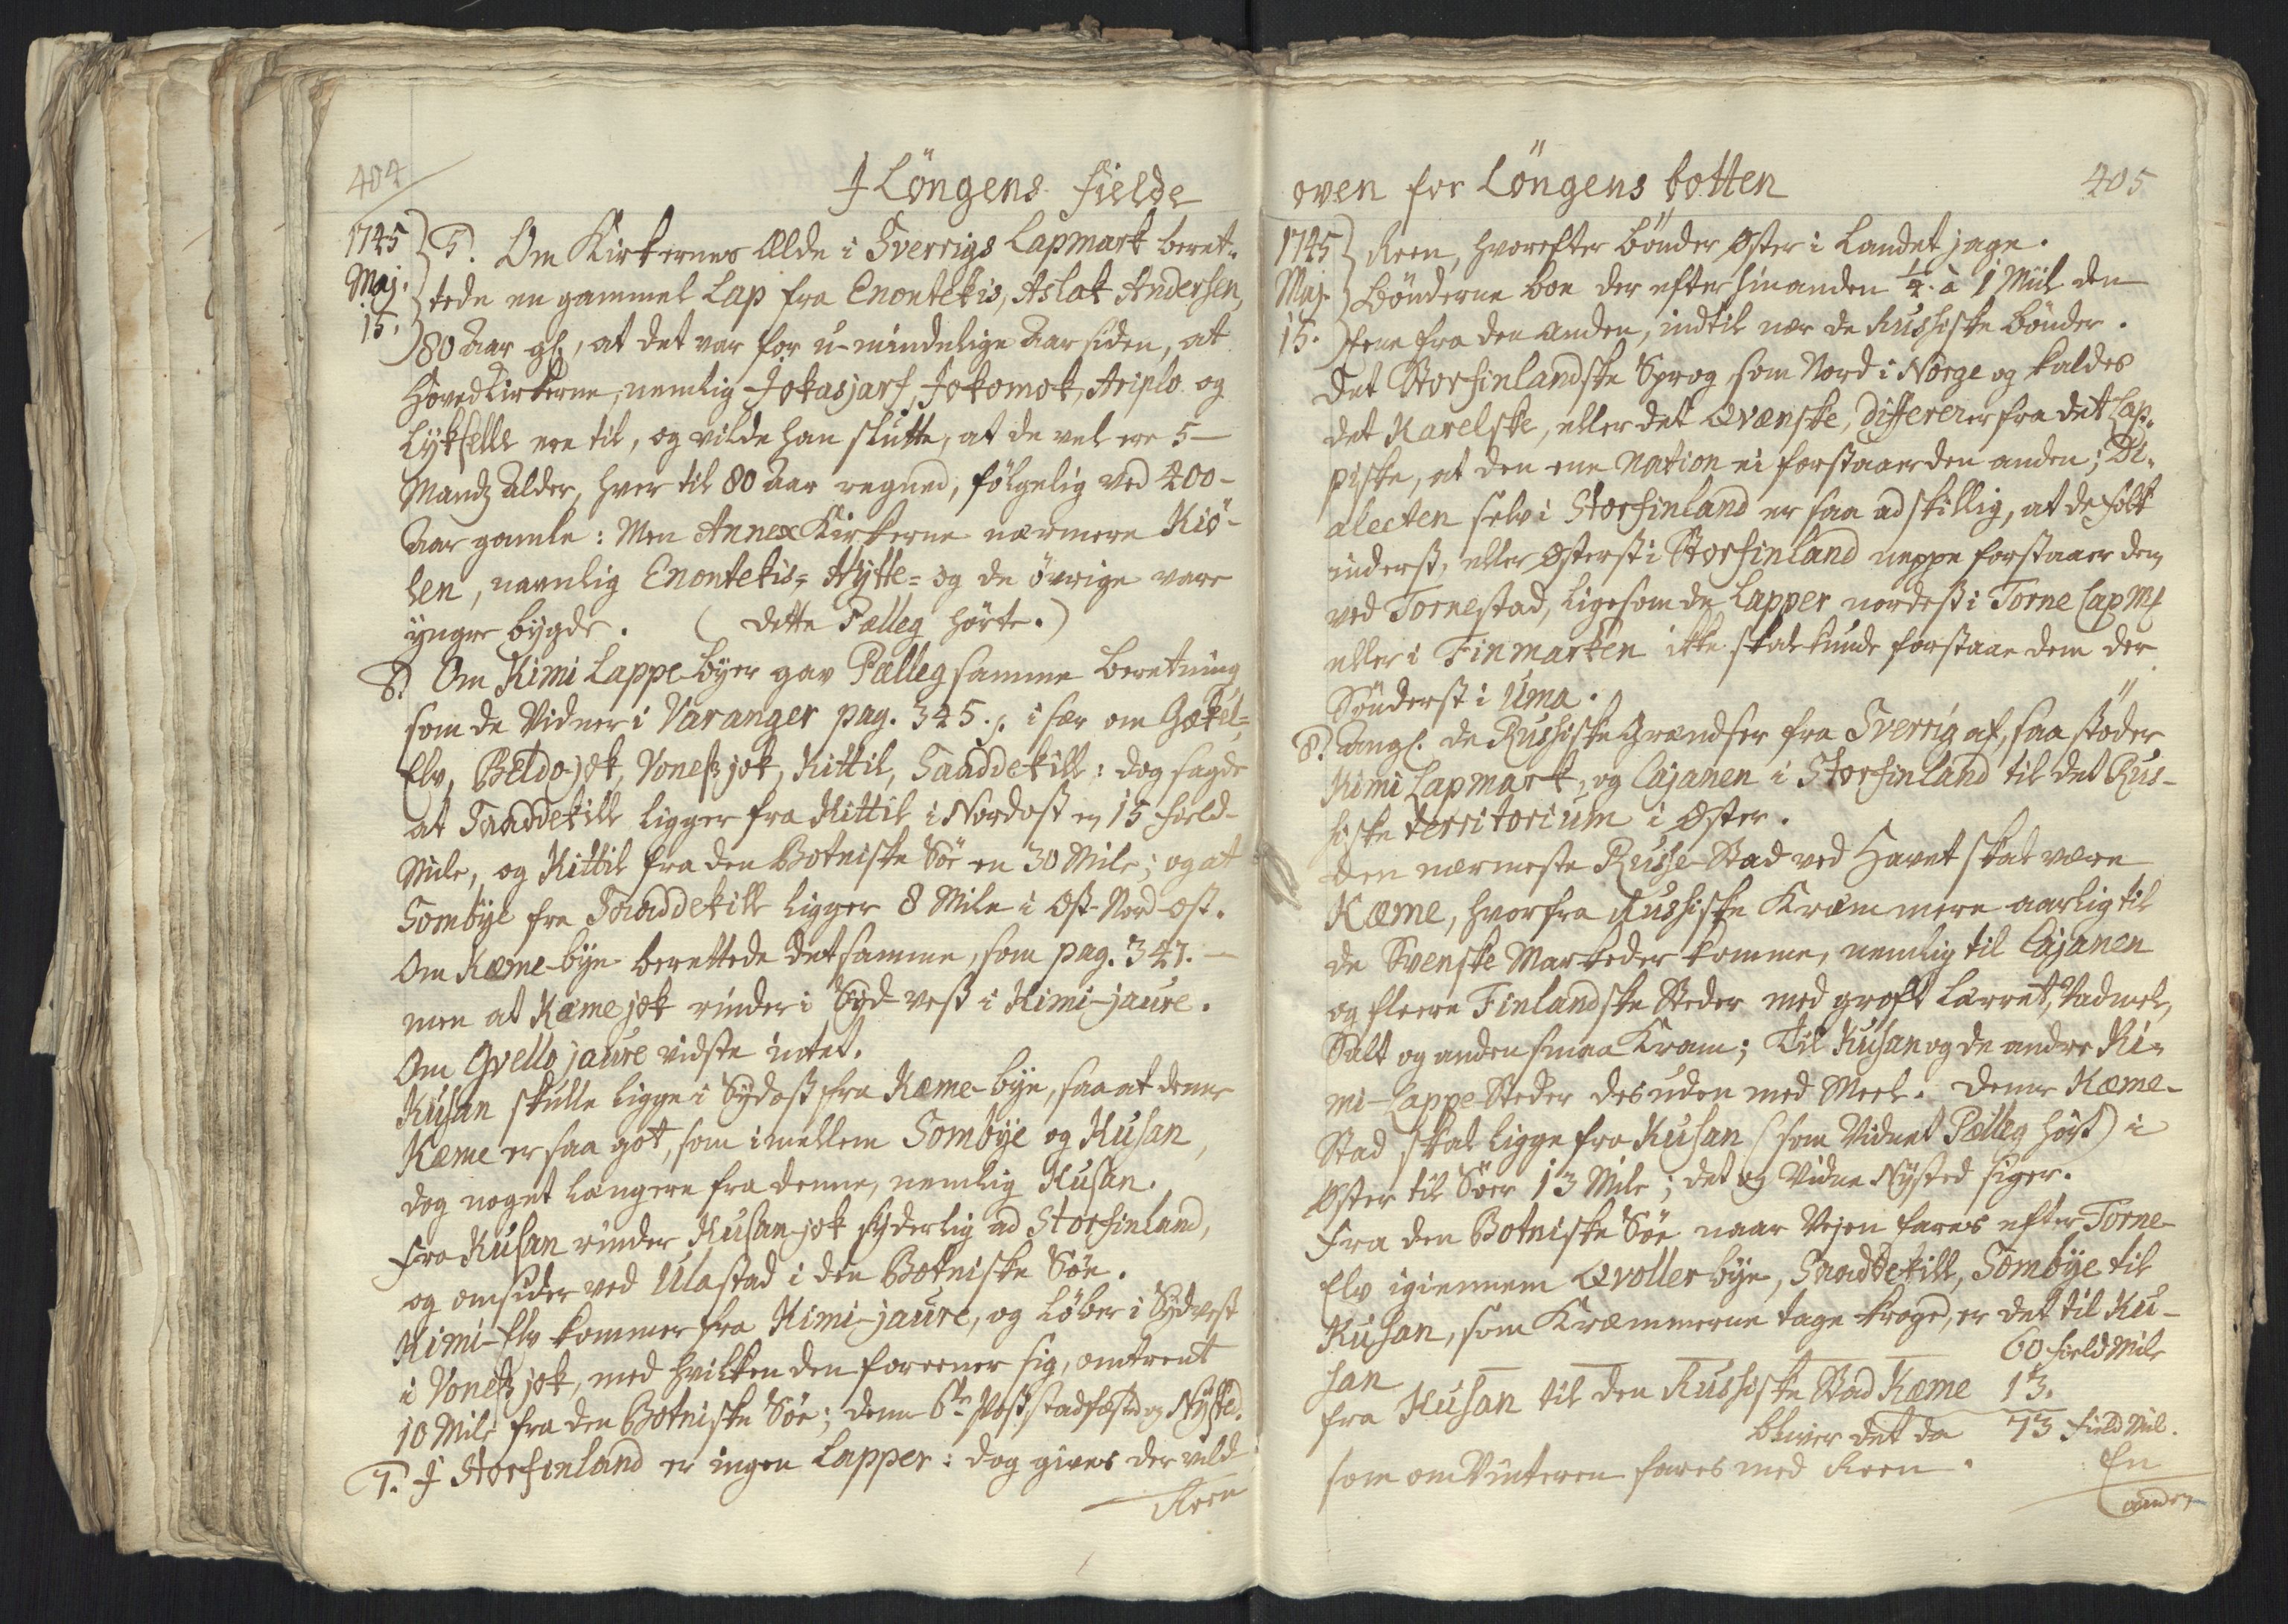 404
I Löngens Fielde
1745
Maj.
15.
5. Om Kirkernes Ælde i Sverrigs Lapmark beret-
tede en gammel Lap fra Enontekis, Aslak Andersen,
80 Aar gl, at det var for u-mindelige Aar siden, at
Hovedkirkerne, nemlig Jokasjarf, Jokomok, Ariplo og
Lÿkselle ere til, og vilde han slutte, at de vel ere 5
Mandz Alder, hver til 80 Aar regned, fölgelig ved 400
Aar gamle: Men Annex Kirkerne nærmere Kiö-
len, navnlig Enontekis- Hÿtte- og de övrige vare
ÿngre bygde. (dette Pælleg hörte.)
6. Om Kimi Lappe-bÿer gav Pælleg samme Beretning
som de Vidner i Varanger pag. 345. især om Gækel-
Elv, Beldojok, Vonesjok, Kittil, Saaddekill: dog sagde
at Saaddekill ligger fra Kittil i Nordost en 15 Field-
Mile, og Kittil fra den Botniske Söe en 30 Mile; og at
Sombÿe fra Saaddekill ligger 8 Mile i Ost-Nord-Ost.
Om Kæme-bÿe berettede det samme, som pag. 347.
men at Kæmejok rinder i Sÿd-vest i Kimi-jaure.
Om Gvello jaure vidste intet.
Kusan skulle ligge i Sÿdost fra Kæme-bÿe, saa at denne
Kæme er saa got, som imellem Sombÿe og Kusan,
dog noget længere fra denne, nemlig Kusan.
Fra Kusan rinder Kusan-jok sÿderlig ad Storfinland,
og omsider ved Ulastad i den Botniske Söe.
Kimi-Elv kommer fra Kimi-jaure, og löber i Sÿdvest
i Vonesjok, med hvilken den foreener sig, omtrent
10 Mile fra den Botniske Söe; denne 6te Post stadfæsted og Nÿsted.
7. I Storfinland er ingen Lapper: dog gives der vild
Reen
oven for Löngens botten
405
1745
Maj.
15.
Reen, hvorefter bönder Öster i Landet jage.
Bönderne boe der efter hinanden ¼ à 1 Miil den
eene fra den anden, indtil nær de Russiske bönder.
Det Storfinlandske Sprog som Nord i Norge og kaldes
det Karelske, eller det Qvænske, differerer fra det Lap-
piske, at den ene Nation ei forstaaer den anden; Di-
alecten selv i Storfinland er saa adskillig, at de folk
inderst, eller Österst i Storfinland neppe forstaaer dem
ved Tornestad, ligesom de Lapper nordest i Torne Lapm
eller i Finmarken ikke skal kunde forstaae dem der
Sönderst i Uma.
8. Angl. de Russiske Grændser fra Sverrig af, saa stöder
Kimi Lapmark, og Cajanen i Storfinland til det Rus-
siske territorium i Öster.
Den nærmeste Russe-Stad ved Havet skal være
Kæme, hvorfra Russiske Kræmmere aarlig til
de Svenske Markeder komme, nemlig til Cajanen
og fleere Finlandske Steder med groft Lærret, Vadmel,
Salt og anden smaa Kram; Til Kusan og de andre Ki-
mi-Lappe-Steder desuden med Meel. Denne Kæme-
Stad skal ligge fra Kusan (som Vidnet Pælleg hört) i
Öster til Söer 13 Mile; det og Vidne Nÿsted siger.
Fra den Botniske Söe naar Vejen fares efter Torne-
Elv igiennem Qvollerbÿe, Saaddekill, Sombÿe til
Kusan, som Kræmmerne tage kroged, er det til Ku-
san 60 Field Mile
fra Kusan til den Russiske Stad Kæme 13.
bliver det da 73 Field Mil.
som om Vinteren fares med Reen.
En
anden